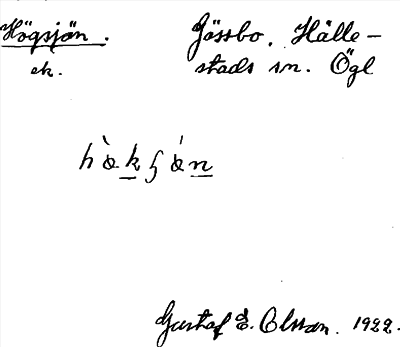 Högsjön.
Jössbo. Hälle-
ek.
stads sn. Ögl
Gustaf E. Olsson. 1922.